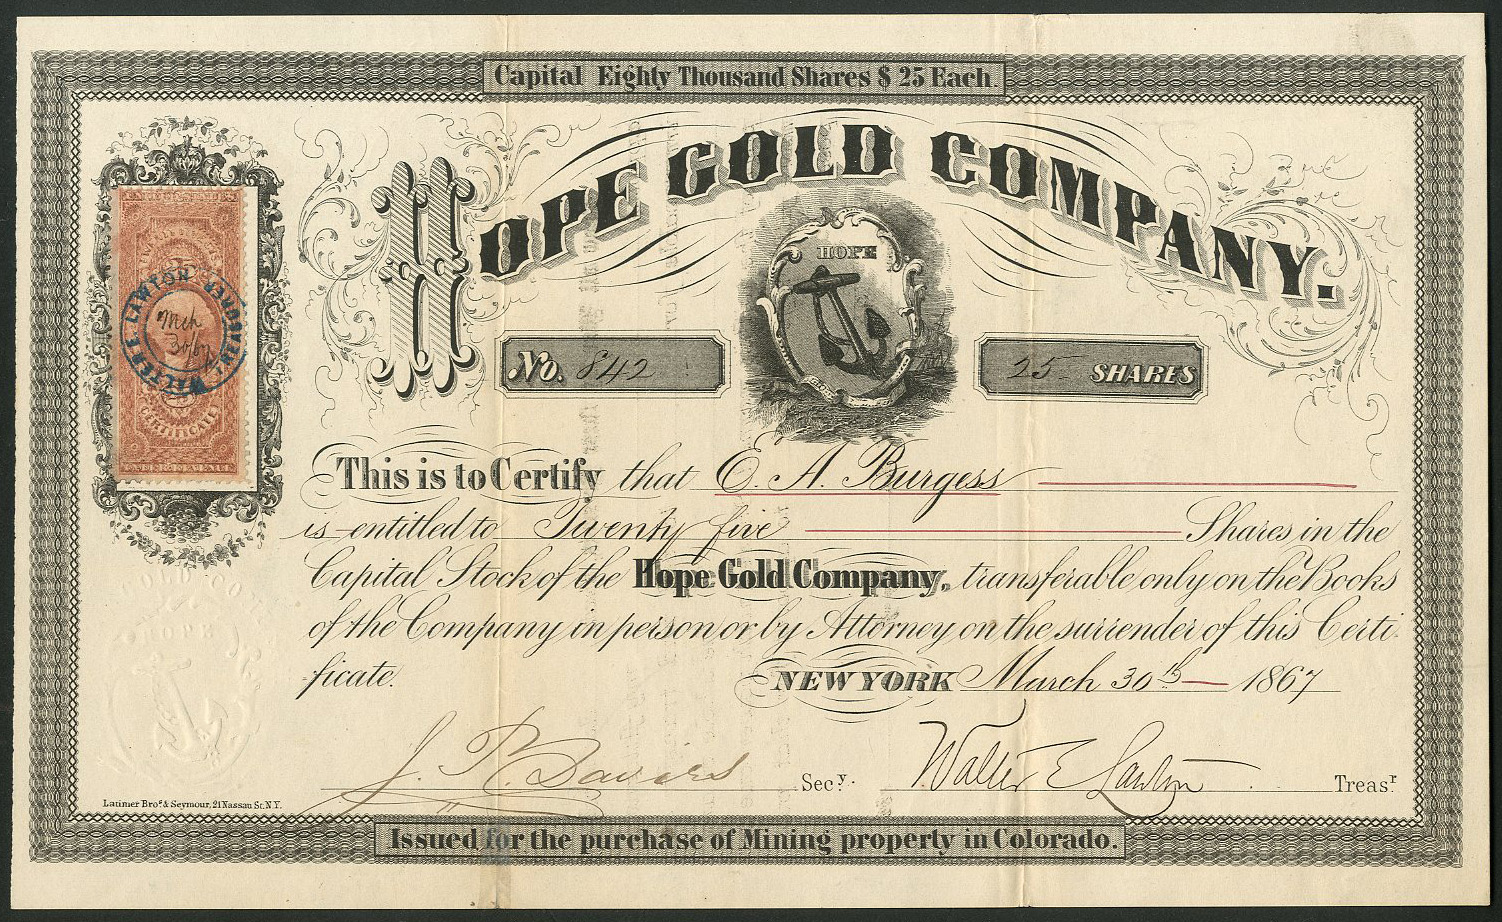 Capital Eighty Thousand Shares $ 25 Each.
HOPE GOLD COMPANY.
HOPE
No. 842
25 SHARES
WALTER E. LAWTON TREASURER
Mch
30/67
CERTIFICATE
This is to Certify that E. A. Burgess
is entitled to Twenty five Shares in the
Capital Stock of the Hope Gold Company, transferable only on the Books
of the Company in person or by Attorney on the surrender of this Certi-
ficate.
NEW YORK March 30th 1867
HOPE
Secy.
Walter E Lawton Treasr
Latimer Bros. & Seymour, 21 Nassau St. N.Y.
Issued for the purchase of Mining property in Colorado.